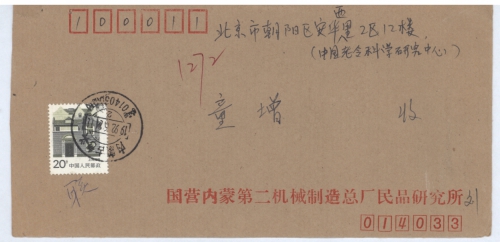 100011
北京市朝阳区安华西里2区12楼
(中国老龄科学研究中心)
1272
童增 收
20分 中国人民邮政
国营内蒙第二机械制造总厂民品研究所 刘
014033